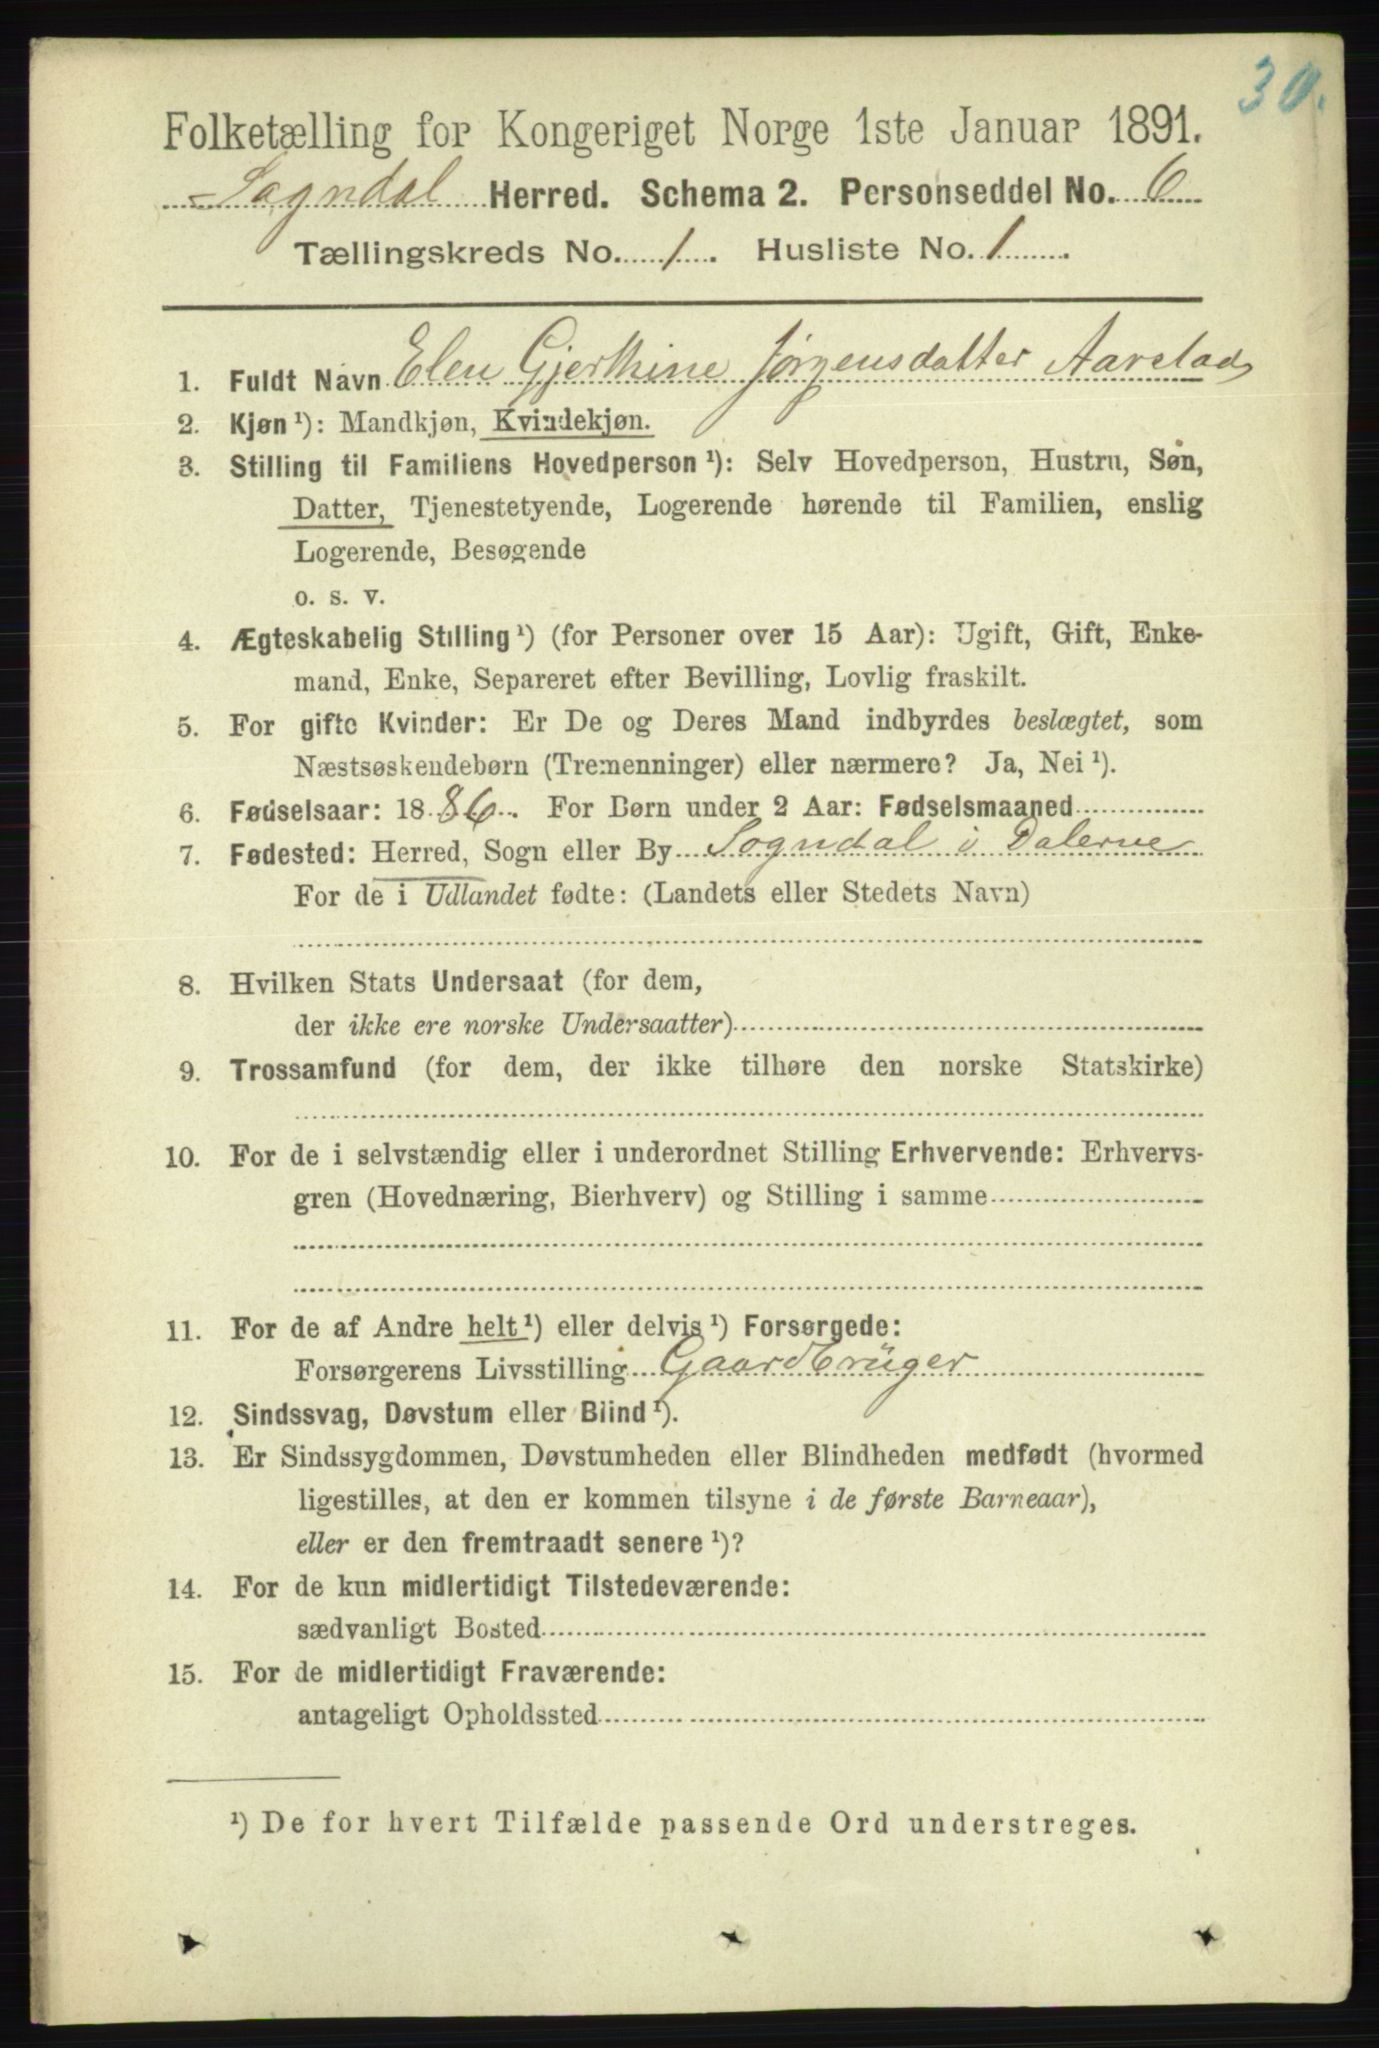 30.
Folketælling for Kongeriget Norge 1ste Januar 1891.
Sogndal Herred. Schema 2. Personseddel No. 6
Tællingskreds No. 1. Husliste No. 1.
1. Fuldt Navn Elen Gjerthine Jørgensdatter Aarstad
2. Kjøn ¹): Mandkjøn, Kvindekjøn.
3. Stilling til Familiens Hovedperson ¹): Selv Hovedperson, Hustru, Søn,
Datter, Tjenestetyende, Logerende hørende til Familien, enslig
Logerende, Besøgende
o. s. v.
4. Ægteskabelig Stilling ¹) (for Personer over 15 Aar): Ugift, Gift, Enke-
mand, Enke, Separeret efter Bevilling, Lovlig fraskilt.
5. For gifte Kvinder: Er De og Deres Mand indbyrdes beslægtet, som
Næstsøskendebørn (Tremenninger) eller nærmere? Ja, Nei ¹).
6. Fødselsaar: 1886. For Børn under 2 Aar: Fødselsmaaned
7. Fødested: Herred, Sogn eller By Sogndal i Dalerne
For de i Udlandet fødte: (Landets eller Stedets Navn)
8. Hvilken Stats Undersaat (for dem,
der ikke ere norske Undersaatter)
9. Trossamfund (for dem, der ikke tilhøre den norske Statskirke)
10. For de i selvstændig eller i underordnet Stilling Erhvervende: Erhvervs-
gren (Hovednæring, Bierhverv) og Stilling i samme
11. For de af Andre helt ¹) eller delvis ¹) Forsørgede:
Forsørgerens Livsstilling Gaardbrüger
12. Sindssvag, Døvstum eller Blind ¹).
13. Er Sindssygdommen, Døvstumheden eller Blindheden medfødt (hvormed
ligestilles, at den er kommen tilsyne i de første Barneaar),
eller er den fremtraadt senere ¹)?
14. For de kun midlertidigt Tilstedeværende:
sædvanligt Bosted
15. For de midlertidigt Fraværende:
antageligt Opholdssted
¹) De for hvert Tilfælde passende Ord understreges.